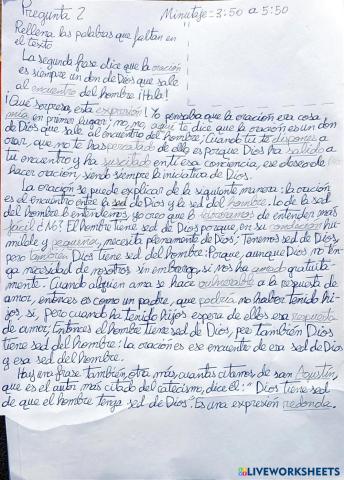 Pregunta 2 Minutaje = 3:50 a 5:50
Rellena las palabras que faltan en
el texto
La segunda frase dice que la oración
es siempre un don de Dios que sale
al encuentro del hombre ¡Hala!
¡Qué sorpresa, esta expresión! Yo pensaba que la oración era cosa
mía en primer lugar; no, no, aquí te dice que la oración es un don
de Dios que sale al encuentro del hombre; Cuando tú te dispones a
orar, que no te has percatado de ello es porque Dios ha salido a
tu encuentro y ha suscitado en ti esa conciencia, ese deseo de
hacer oración, siendo siempre la iniciativa de Dios.
La oración se puede explicar de la siguiente manera: la oración
es el encuentro entre la sed de Dios y la sed del hombre. Lo de la sed
del hombre lo entendemos, yo creo que lo de entender más
fácil ¿No? El hombre tiene sed de Dios porque, en su condición hu-
milde y pequeña, necesita plenamente de Dios; Tenemos sed de Dios,
pero también Dios tiene sed del hombre: Porque, aunque Dios no ten-
ga necesidad de nosotros sin embargo, si nos ha amado gratuita-
mente. Cuando alguien ama se hace vulnerable a la respuesta de
amor, entonces es como un padre, que podría no haber tenido hi-
jos, si, pero cuando ha tenido hijos espera de ellos esa respuesta
de amor; Entonces el hombre tiene sed de Dios, pero también Dios
tiene sed del hombre: La oración es ese encuentro de esa sed de Dios
y esa sed del hombre.
Hay una frase también, otra más, cuantas citamos de san Agustín,
que es el autor más citado del catecismo, dice él: "Dios tiene sed
de que el hombre tenga sed de Dios". Es una expresión redonda.
LIVEWORKSHEETS